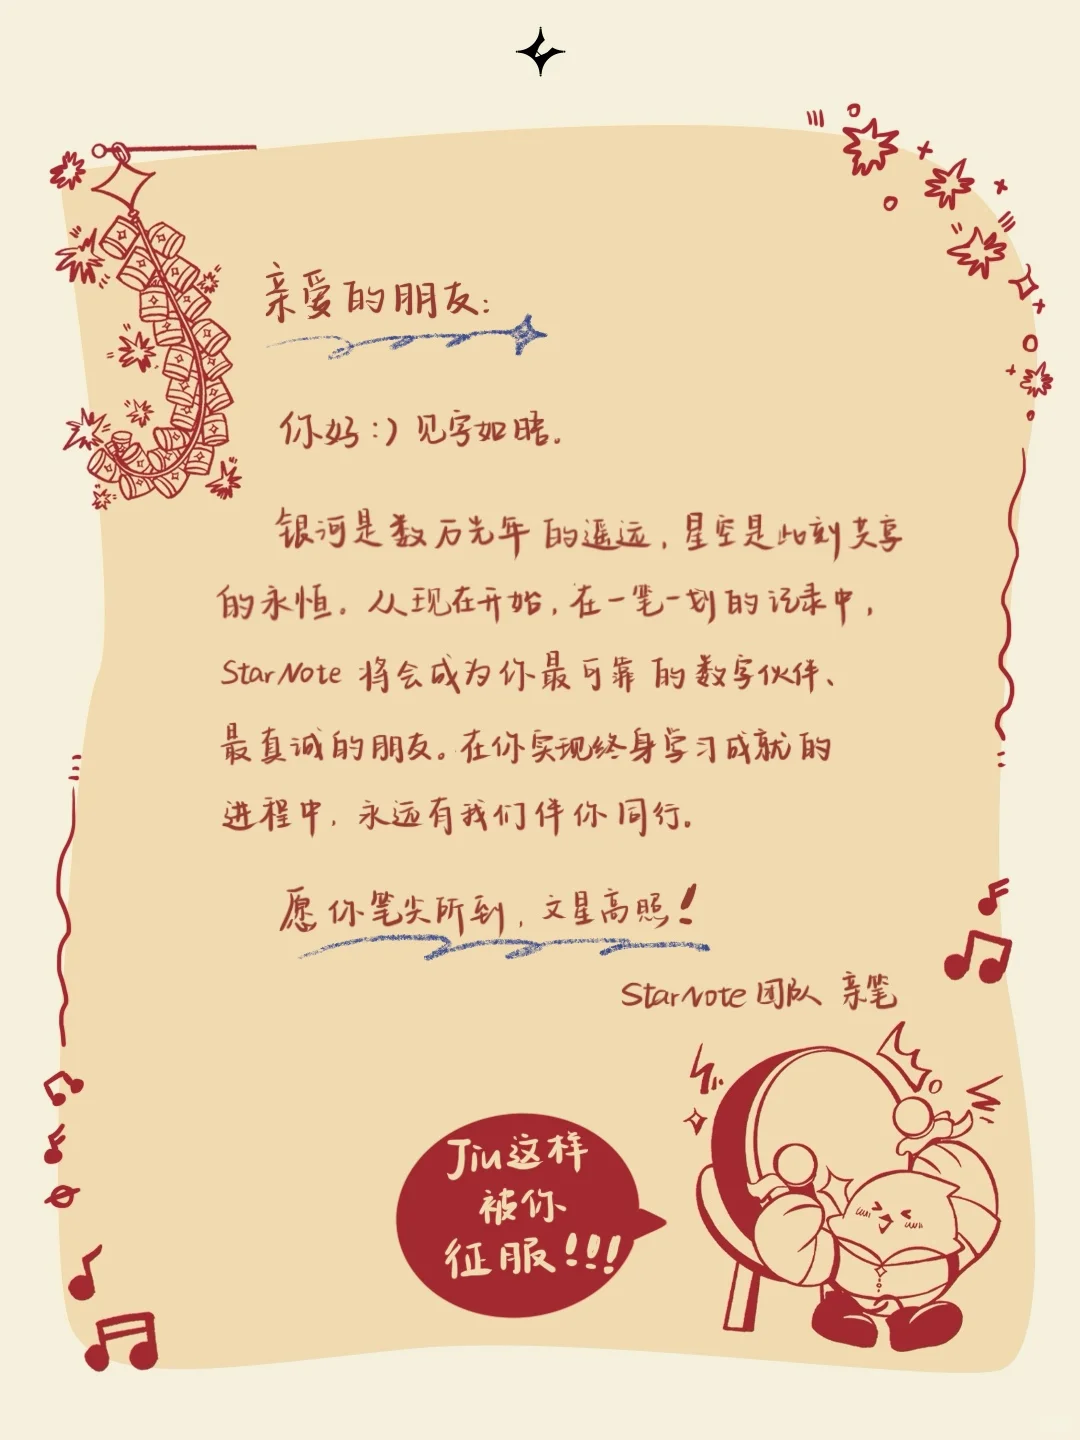 亲爱的朋友:
你好:) 见字如晤.
银河是数万光年的遥远，星空是此刻共享
的永恒。从现在开始，在一笔一划的记录中，
StarNote 将会成为你最可靠的数字伙伴、
最真诚的朋友。在你实现终身学习成就的
进程中，永远有我们伴你同行。
愿你笔尖所到，文星高照!
StarNote 团队 亲笔
Jiu这样
被你
征服!!!